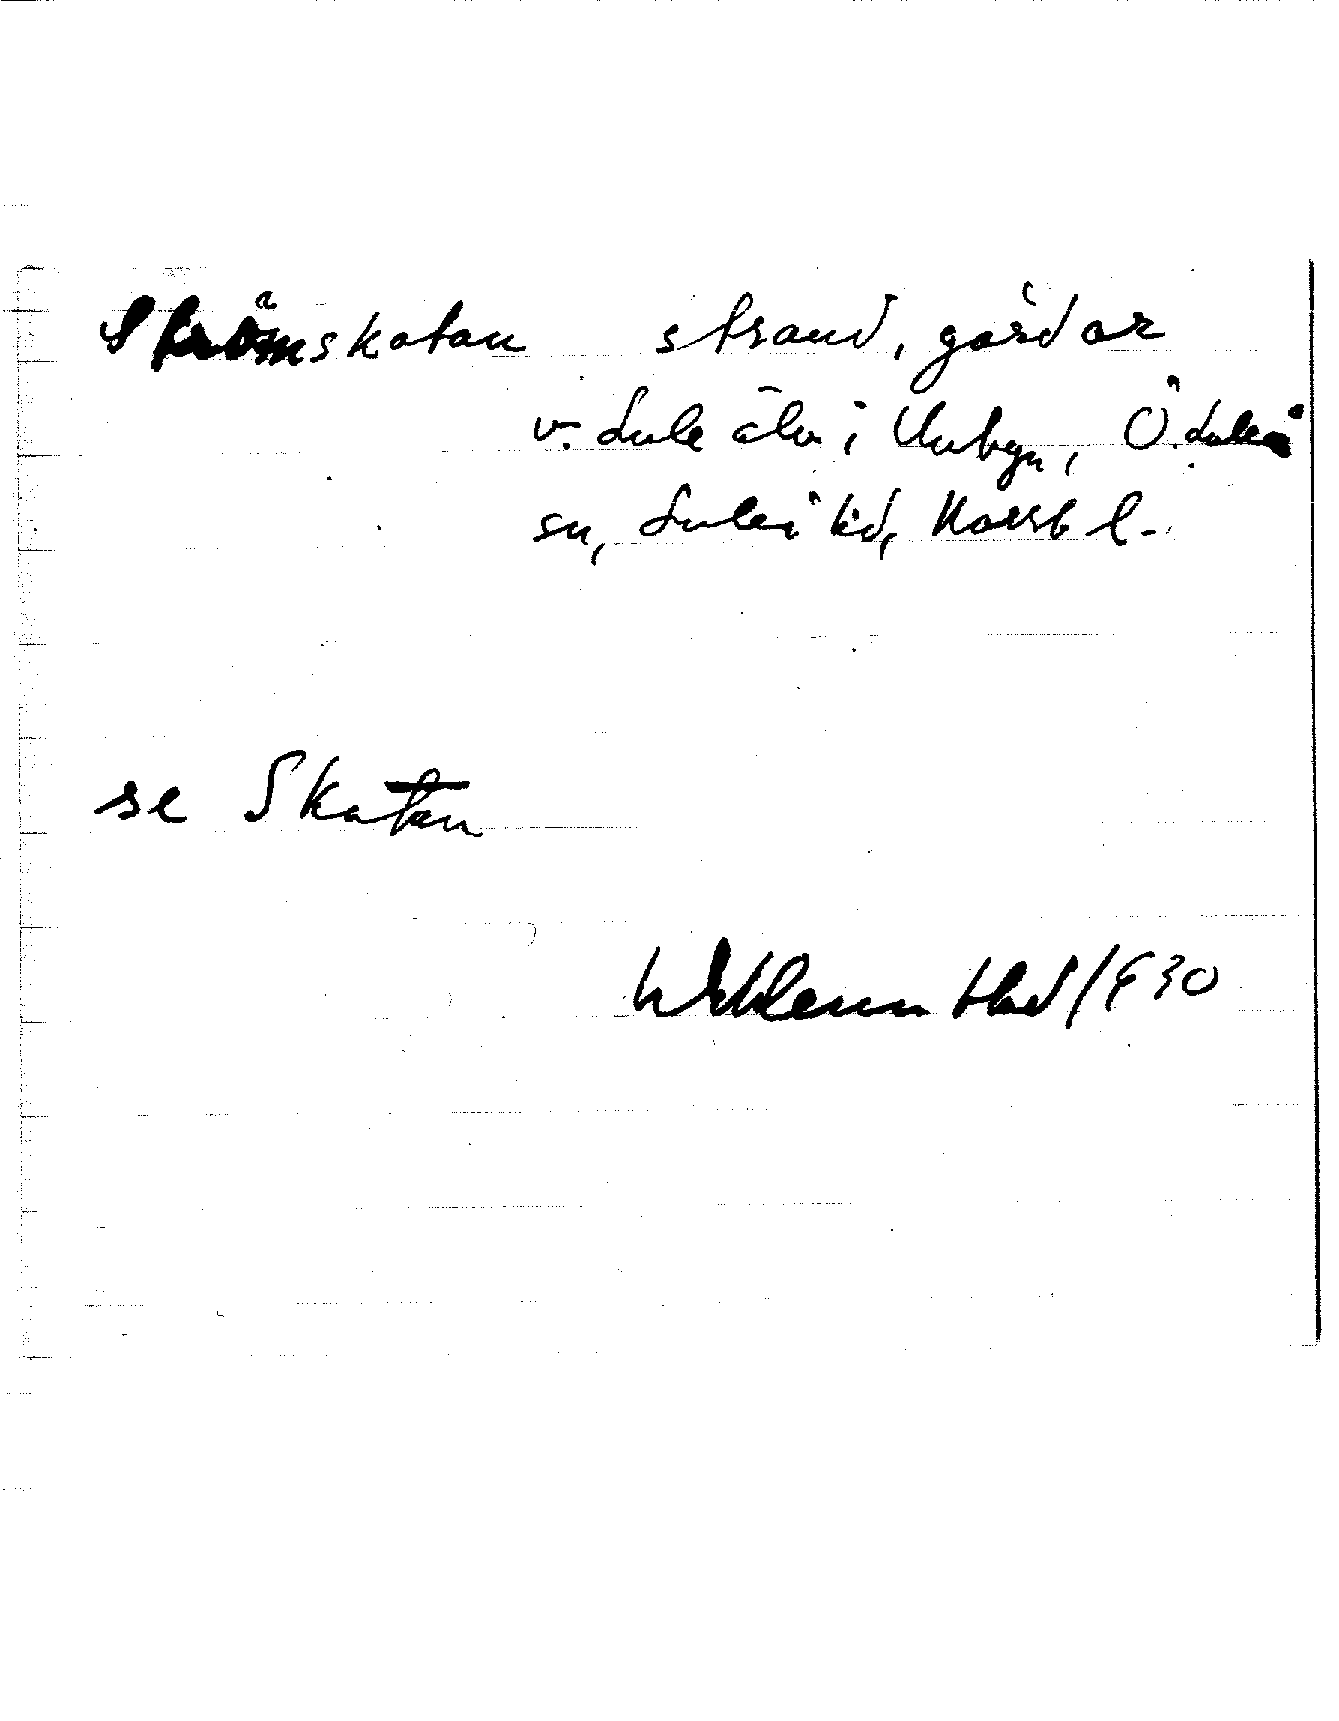 Strömskatan strand, gårdar
v. Lule älv i Unbyn, Ö. Luleå
sn, Luleå kd, Norrb l.
se Skatan
Wennblad 1930